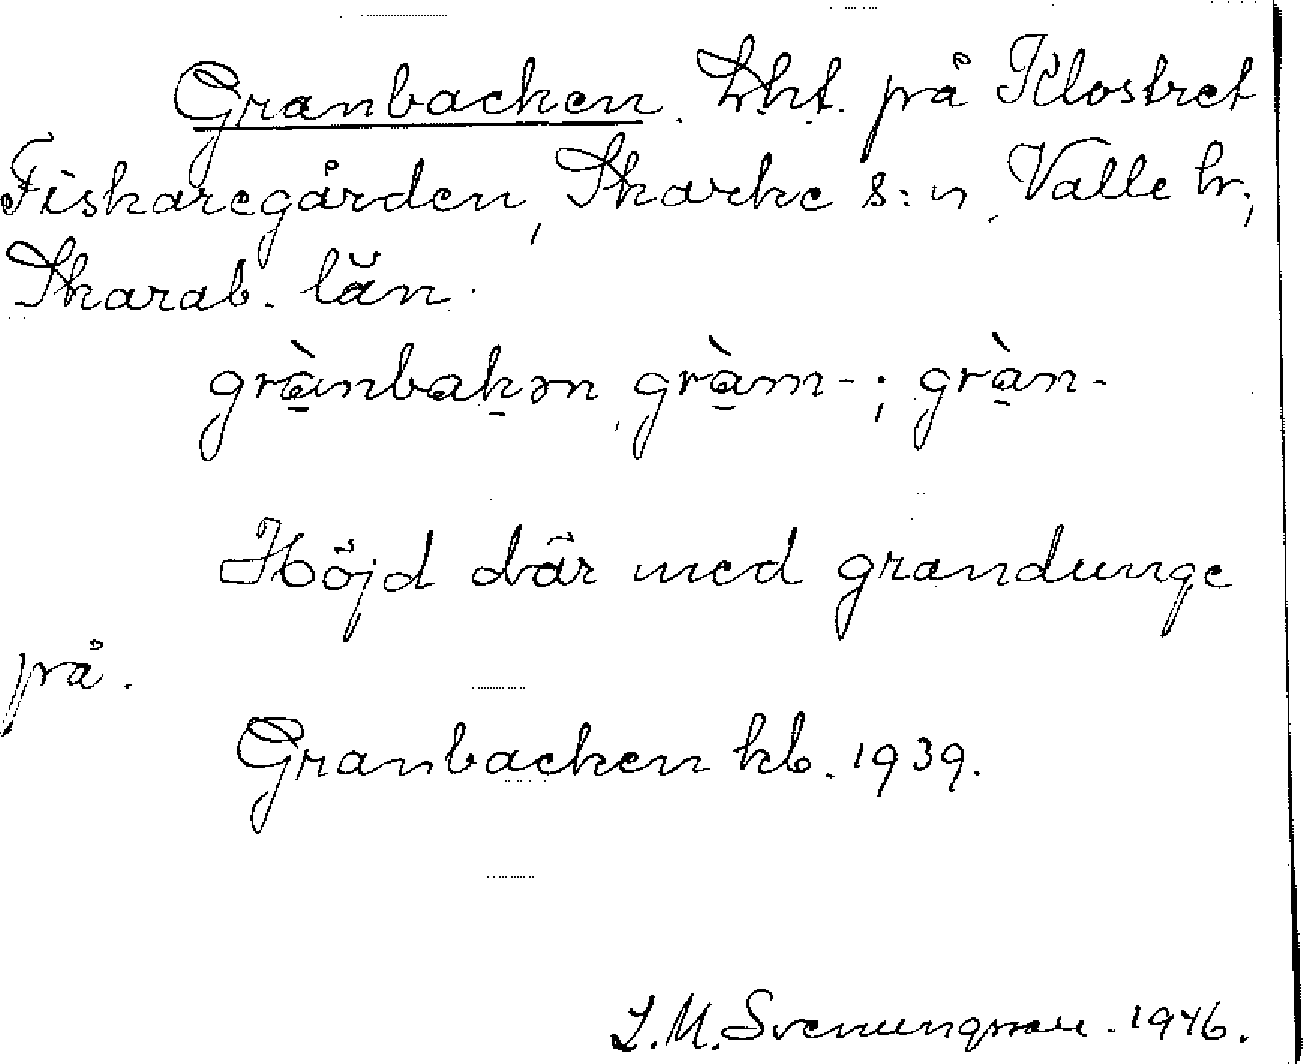 Granbacken. Lht. på Klostret
Fiskaregården, Skarke s:n, Valle hr,
Skarab. län.
grànbakən, gràm-; gràn-
Höjd där med grandunge
på.
Granbacken kb. 1939.
L.M. Svenungsson. 1946.